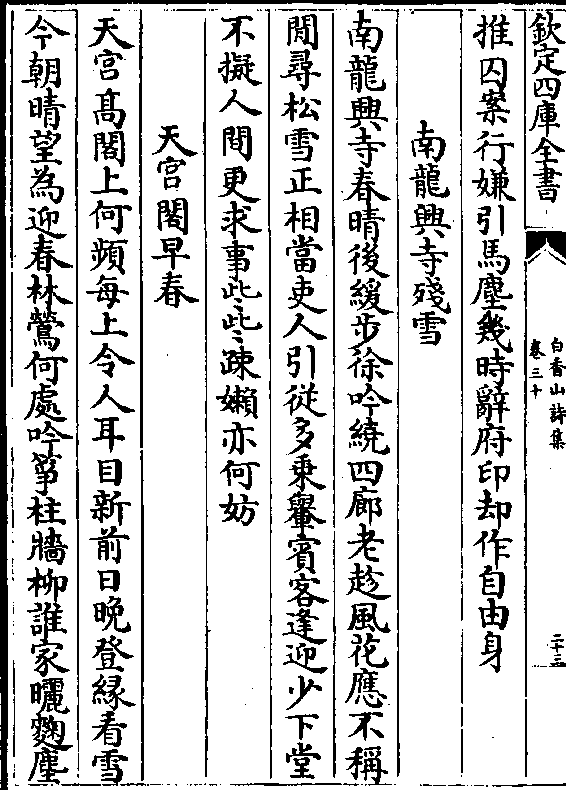 欽定四庫全書
白香山詩集
卷三十
二十三
推囚案行嫌引馬塵幾時辭府印却作自由身
南龍興寺殘雪
南龍興寺春晴後緩步徐吟繞四廊老趁風花應不稱
閒尋松雪正相當吏人引從多乗轝賔客逢迎少下堂
不擬人間更求事些些疎嬾亦何妨
天宫閣早春
天宫髙閣上何頻每上令人耳目新前日晚登縁看雪
今朝晴望為迎春林鶯何處吟筝柱牆柳誰家曬麴塵